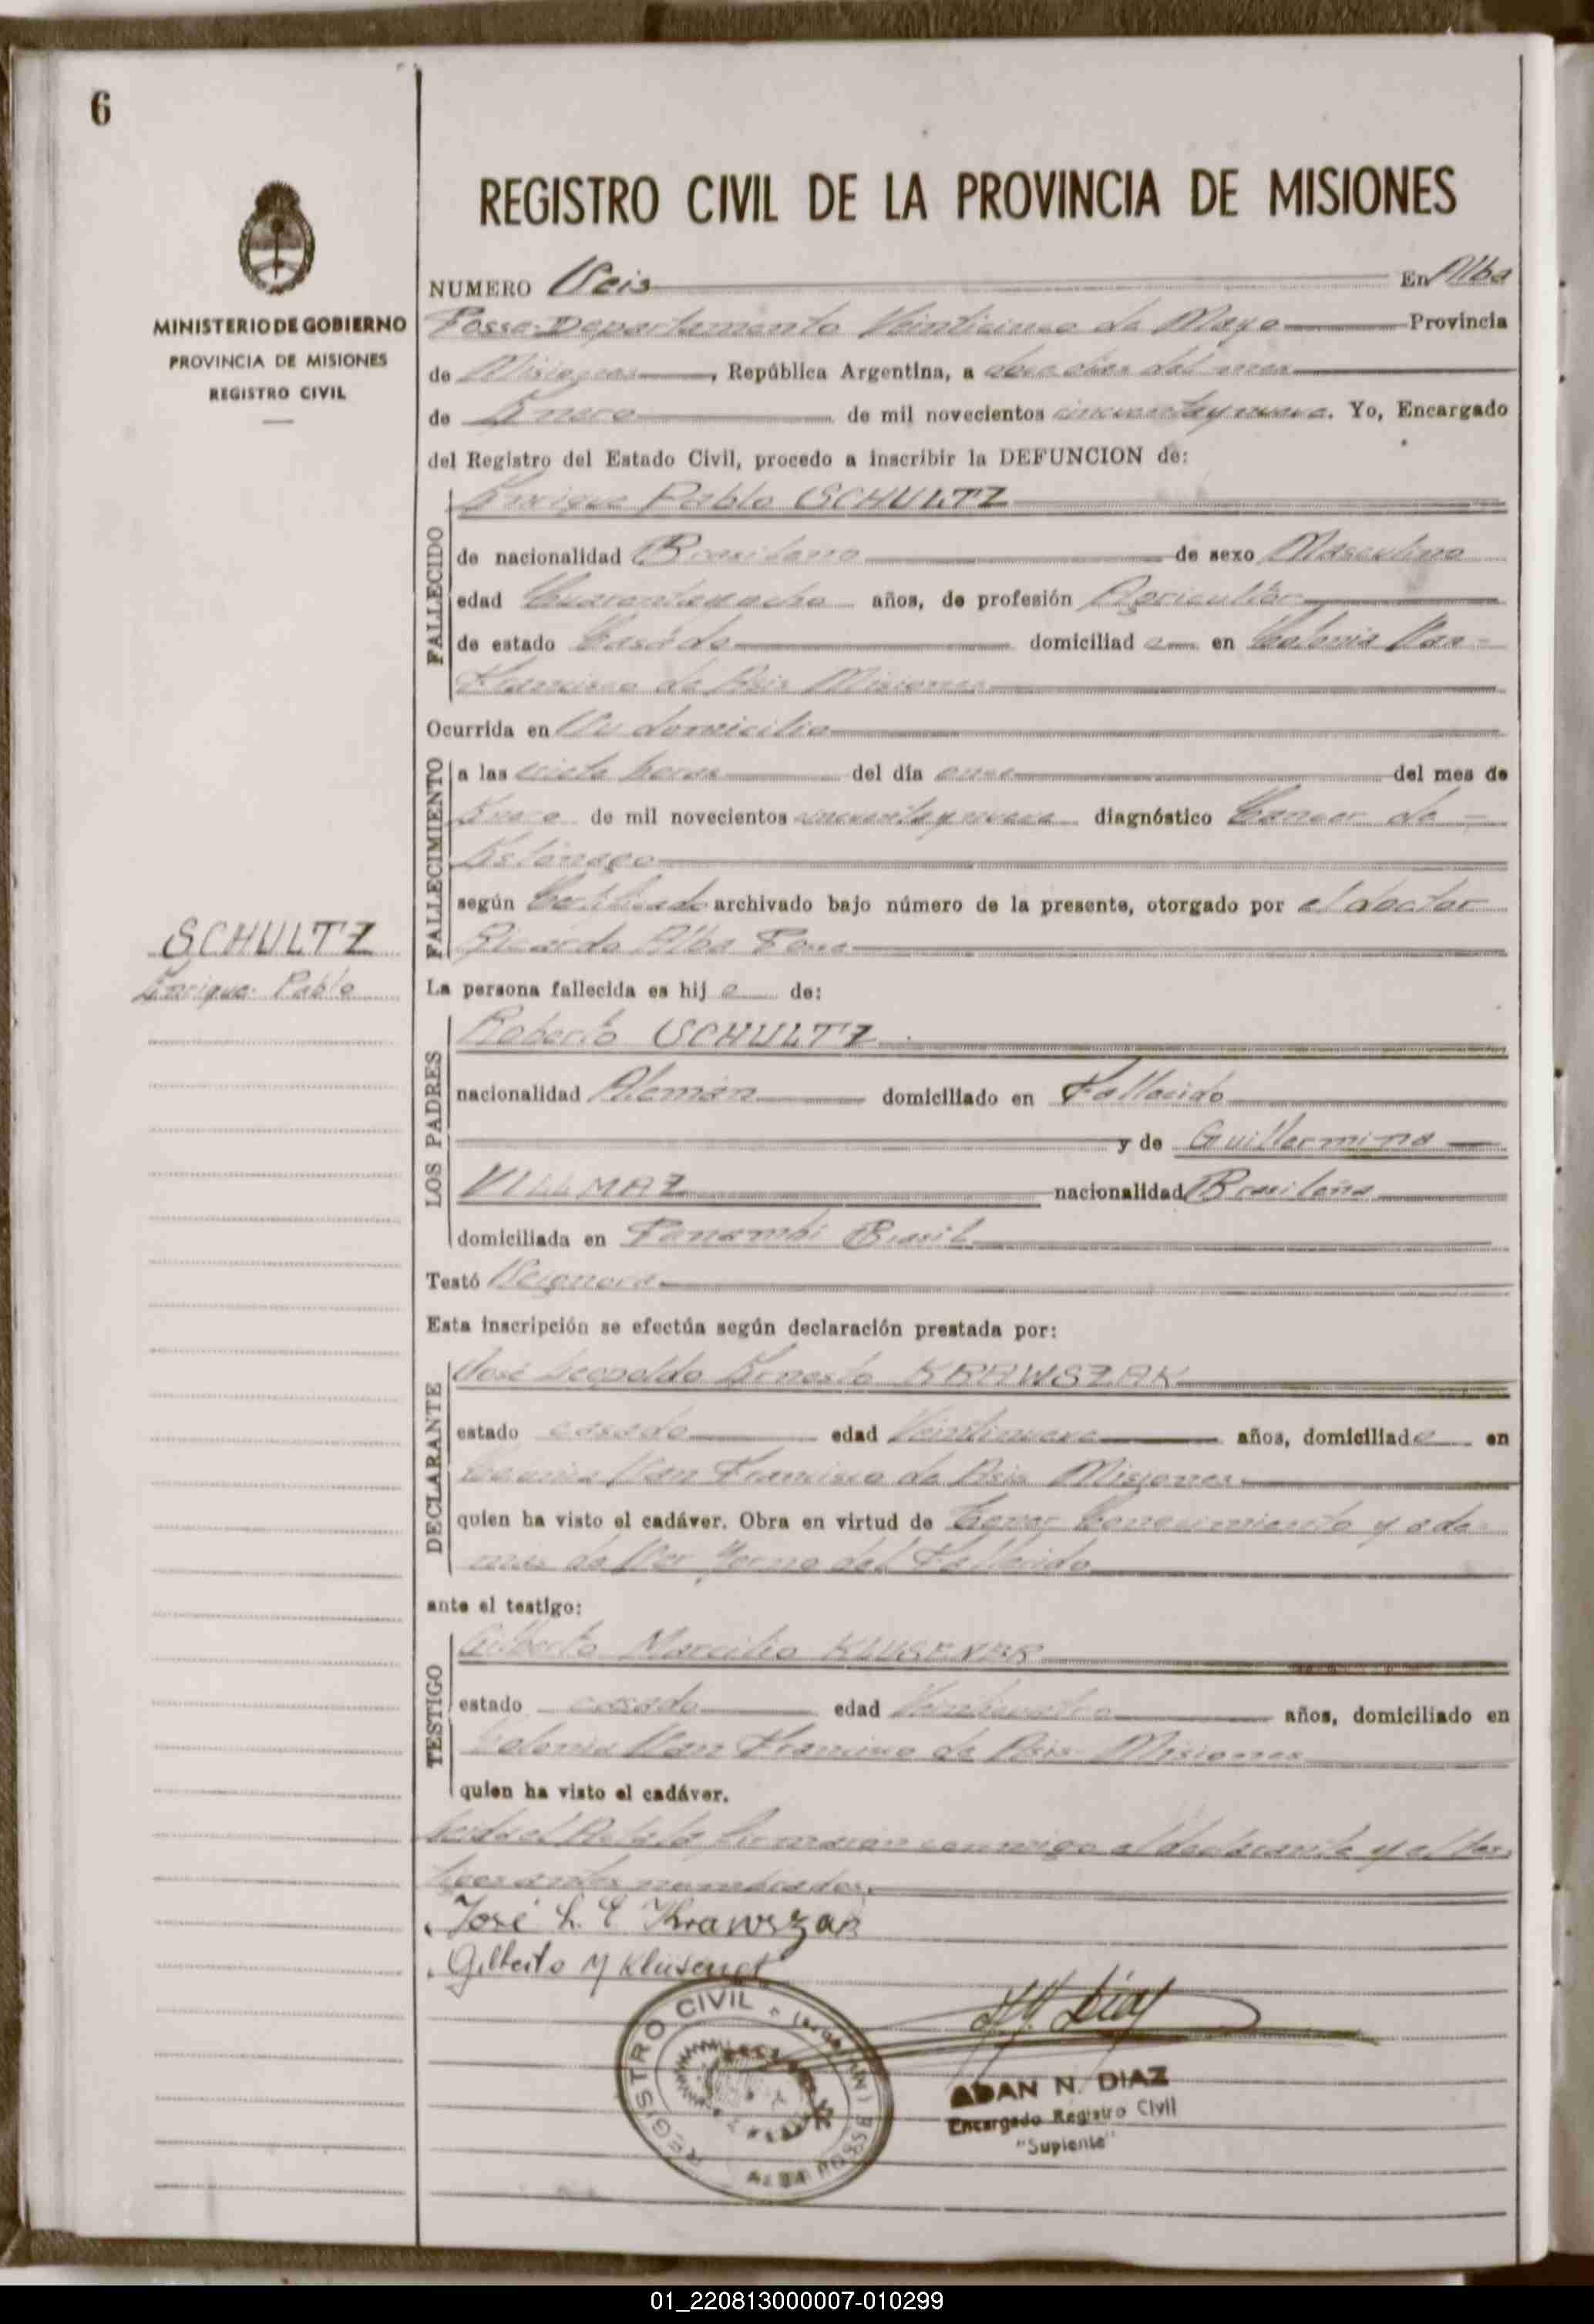 6
MINISTERIO DE GOBIERNO
PROVINCIA DE MISIONES
REGISTRO CIVIL
SCHULTZ
Enrique Pablo
REGISTRO CIVIL DE LA PROVINCIA DE MISIONES
NUMERO Seis En Alba
Posse Departamento Veinticinco de Mayo Provincia
de Misiones, República Argentina, a doce dias del mes
de Enero de mil novecientos cincuenta y nueve. Yo, Encargado
del Registro del Estado Civil, procedo a inscribir la DEFUNCION de:
Enrique Pablo SCHULTZ
FALLECIDO
de nacionalidad Brasilero de sexo Masculino
edad Cuarenta y ocho años, de profesión Agricultor
de estado Casado domiciliad o en Colonia San
Francisco de Asis Misiones
Ocurrida en Su domicilio
FALLECIMIENTO
a las siete horas del día once del mes de
Enero de mil novecientos cincuenta y nueve diagnóstico Cancer de
Estómago
según Certificado archivado bajo número de la presente, otorgado por el doctor
Ricardo Alba
La persona fallecida es hij o de:
LOS PADRES
Roberto SCHULTZ
nacionalidad Alemán domiciliado en Fallecido
y de Guillermina
nacionalidad Brasileña
domiciliada en Panambi Brasil
Testó Se ignora
Esta inscripción se efectúa según declaración prestada por:
DECLARANTE
José Leopoldo Ernesto KRAWSZAK
estado casado edad Veintinueve años, domiciliado en
Colonia San Francisco de Asis Misiones
quien ha visto el cadáver. Obra en virtud de tener conocimiento y ade
mas de Ser Yerno del Fallecido
ante el testigo:
TESTIGO
Gilberto Marcilio KLUSENER
estado casado edad Veinticuatro años, domiciliado en
Colonia San Francisco de Asis Misiones
quien ha visto el cadáver.
Leida el Acta la firmaron conmigo el declarante y el tes
tigo antes nombrados.
José L. E Krawszak
Gilberto M Klusener
REGISTRO CIVIL
ALBA POSSE
ADAN N. DIAZ
Encargado Registro Civil
"Suplente"
01_220813000007-010299